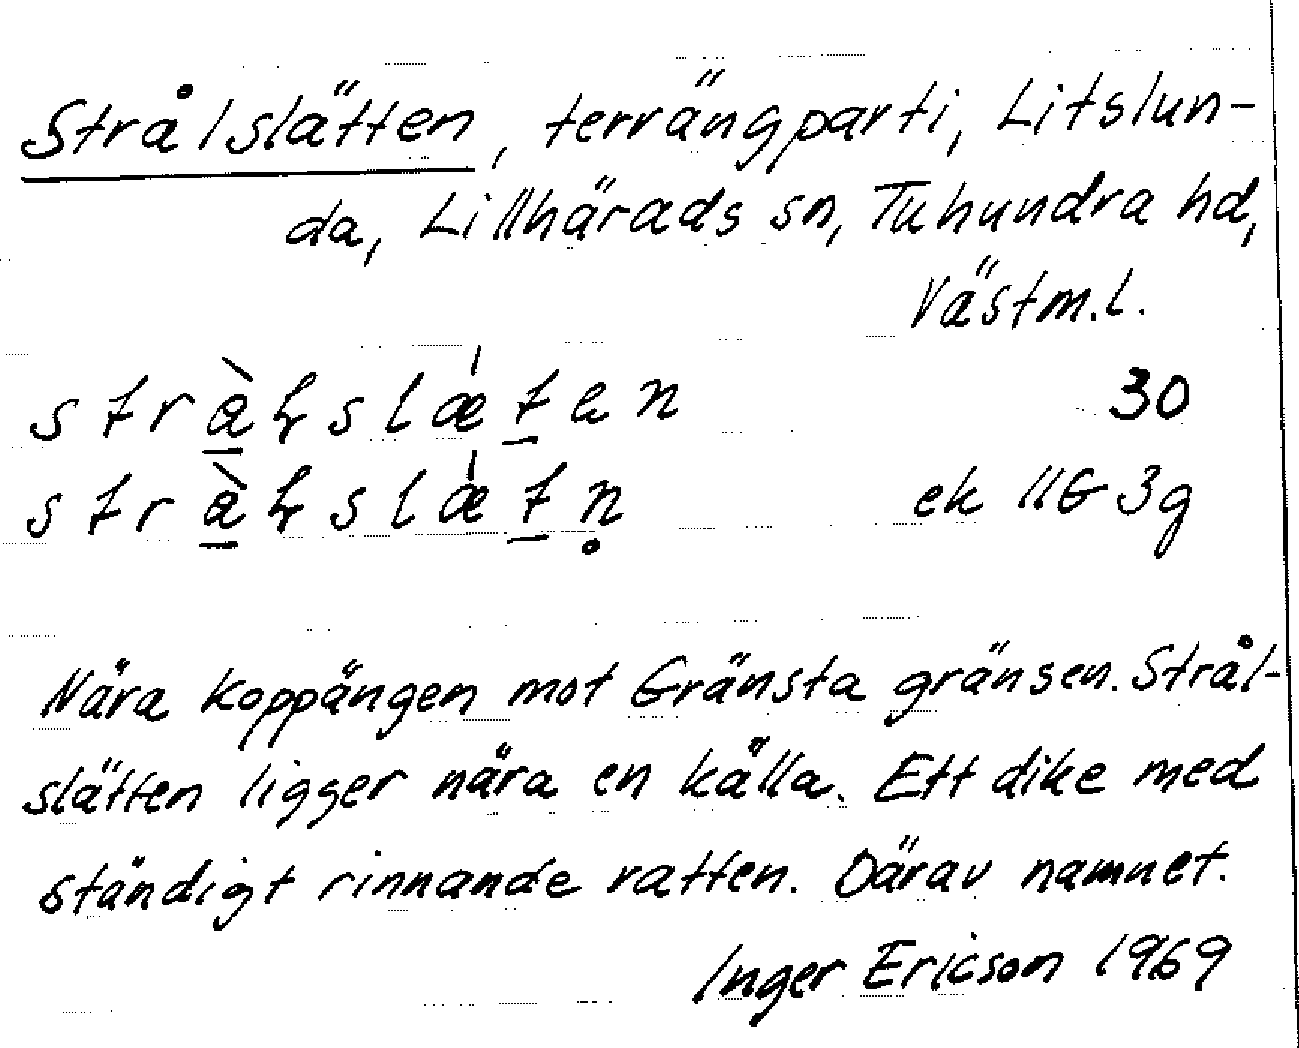 Strålslätten, terrängparti, Litslun-
da, Lillhärads sn, Tuhundra hd,
Västm.l.
30
ek 11G 3g
Nära Koppängen mot Gränsta gränsen. Strål-
slätten ligger nära en källa. Ett dike med
ständigt rinnande vatten. Därav namnet.
Inger Ericson 1969